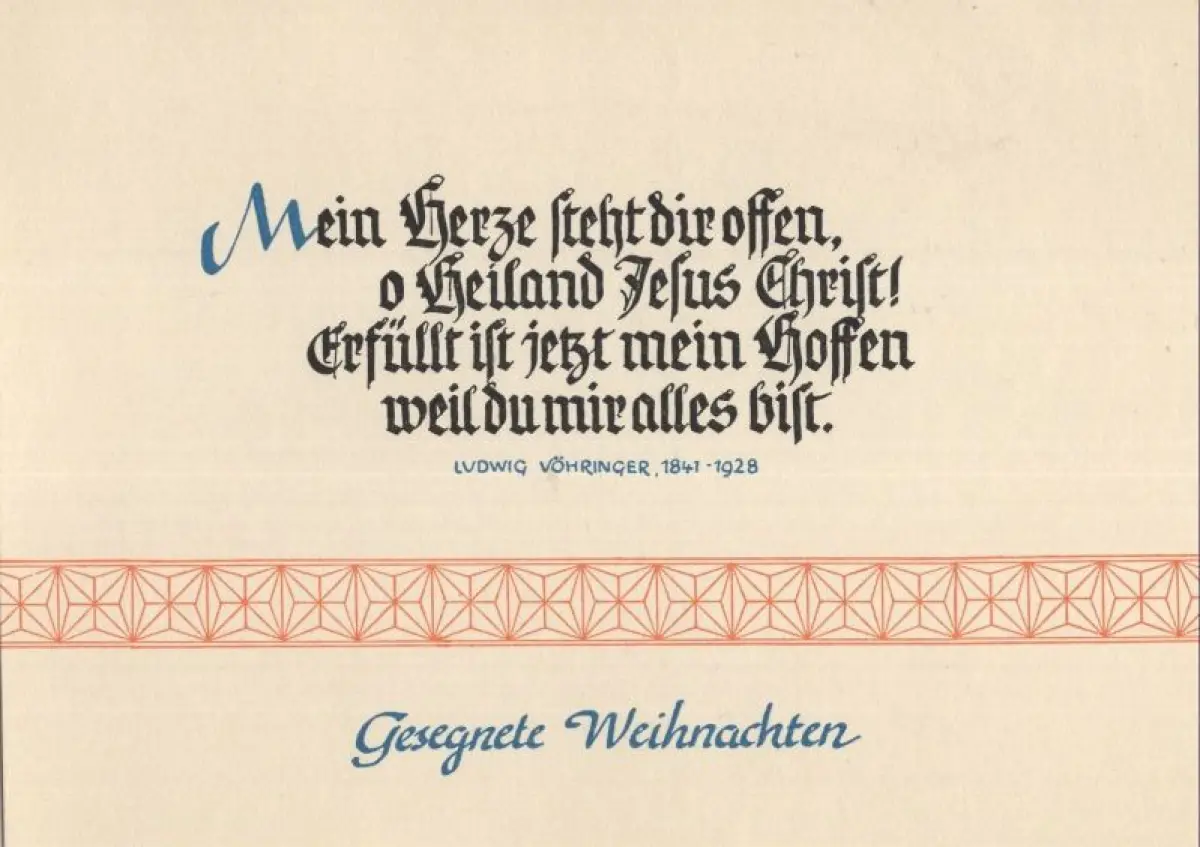 Mein Herze steht dir offen,
o Heiland Jesus Christ!
Erfüllt ist jetzt mein Hoffen
weil du mir alles bist.
LUDWIG VÖHRINGER, 1841-1928
Gesegnete Weihnachten